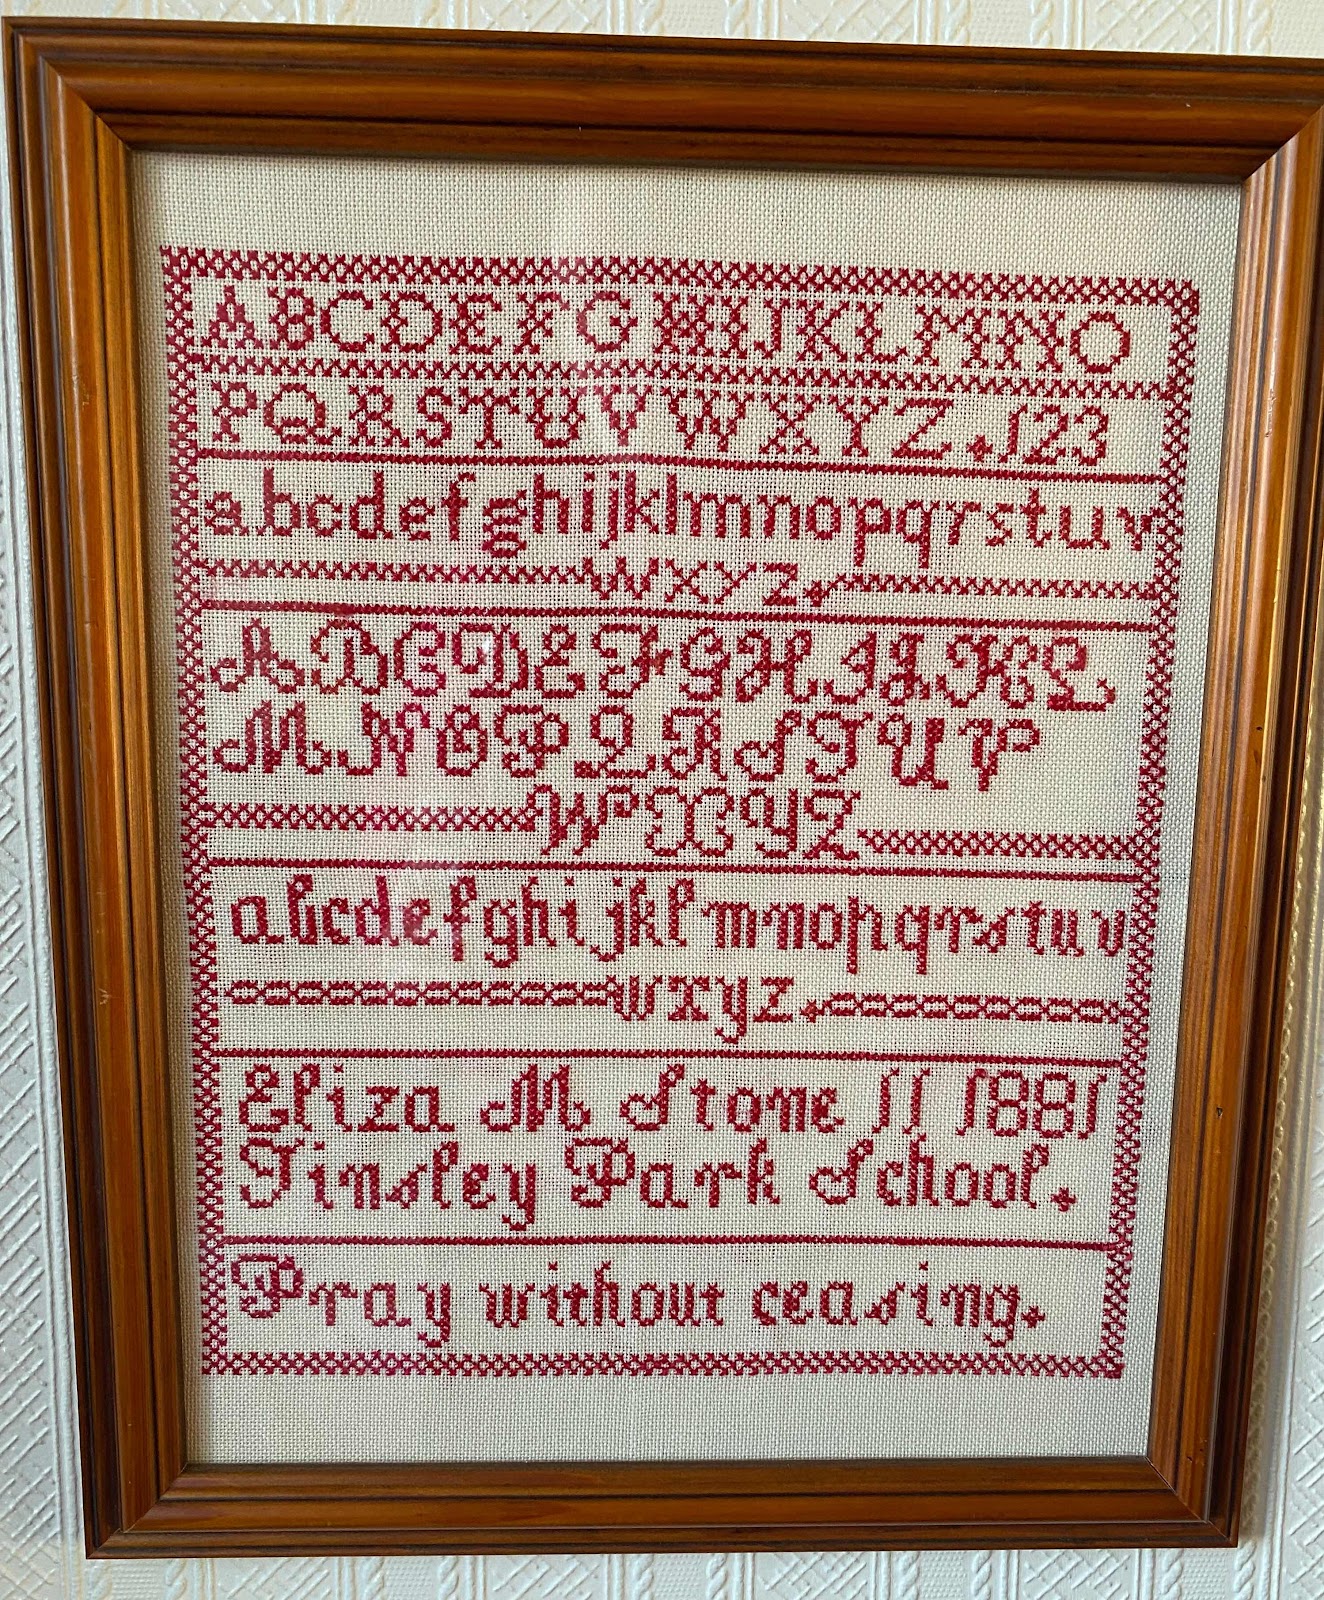 ABCDEFGHIJKLMNO
PQRSTUVWXYZ.123
abcdefghijklmnopqrstuv
wxyz.
ABCDEFGHIJKL
MNOPQRSTUV
WXYZ
abcdefghijklmnopqrstuv
wxyz.
Eliza M Stone 11 1881
Tinsley Park School.
Pray without ceasing.